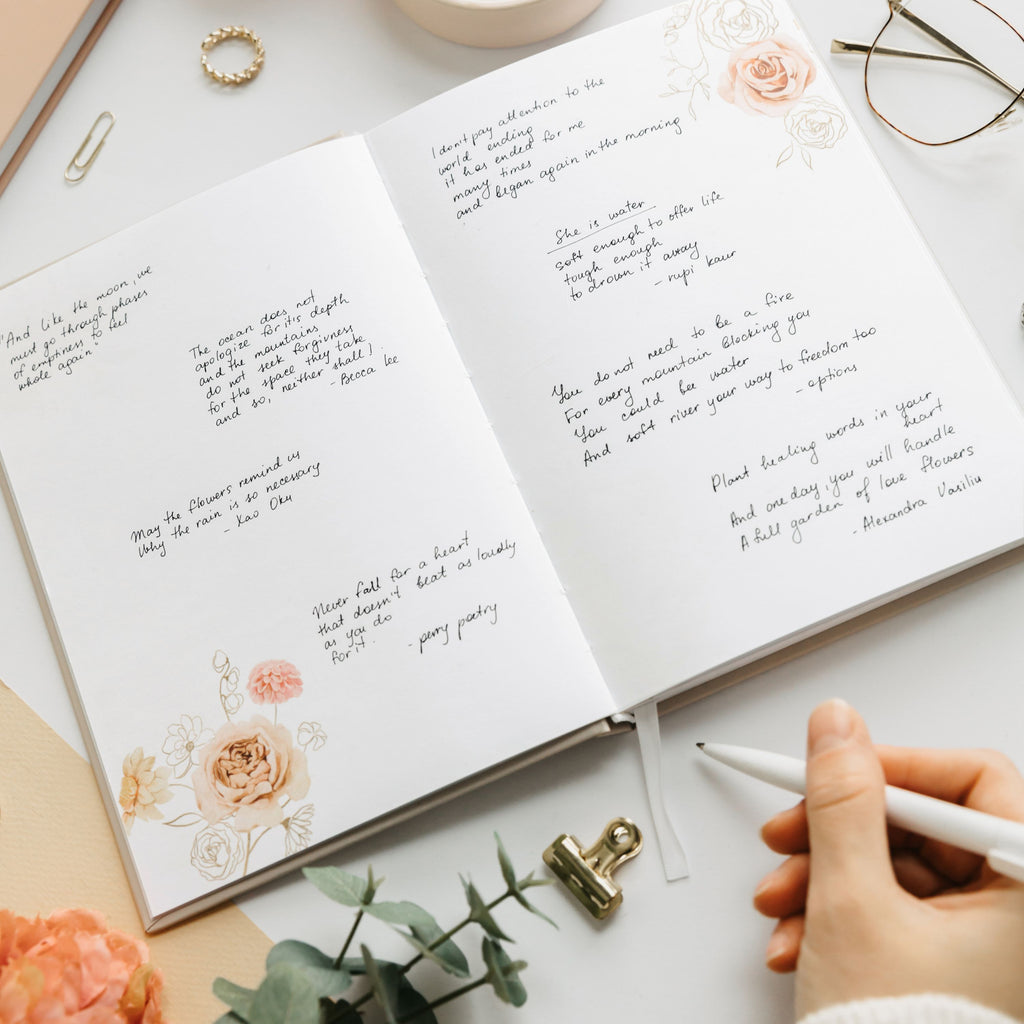 "And like the moon, we
must go through phases
of emptiness to feel
whole again."
The ocean does not
apologize for it's depth
and the mountains
do not seek forgivness
for the space they take
and so, neither shall I.
- Becca Lee
May the flowers remind us
Why the rain is so necessary
- Xao Oku
Never fall for a heart
that doesn't beat as loudly
as you do
for it.
- perry poetry
I don't pay attention to the
world ending
it has ended for me
many times
and began again in the morning
She is water
soft enough to offer life
tough enough
to drown it away
- rupi kaur
You do not need to be a fire
For every mountain blocking you
You could be water
And soft river your way to freedom too
- options
Plant healing words in your
heart
And one day, you will handle
A full garden of love flowers
- Alexandra Vasiliu